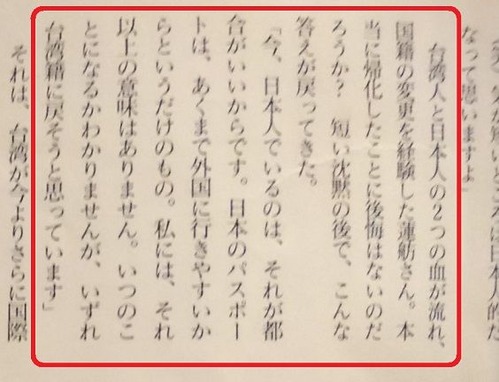 なって思いますよ」
台湾人と日本人の2つの血が流れ、
国籍の変更を経験した蓮舫さん。本
当に帰化したことに後悔はないのだ
ろうか? 短い沈黙の後で、こんな
答えが戻ってきた。
「今、日本人でいるのは、それが都
合がいいからです。日本のパスポー
トは、あくまで外国に行きやすいか
らというだけのもの。私には、それ
以上の意味はありません。いつのこ
とになるかわかりませんが、いずれ
台湾籍に戻そうと思っています」
それは、台湾が今よりさらに国際